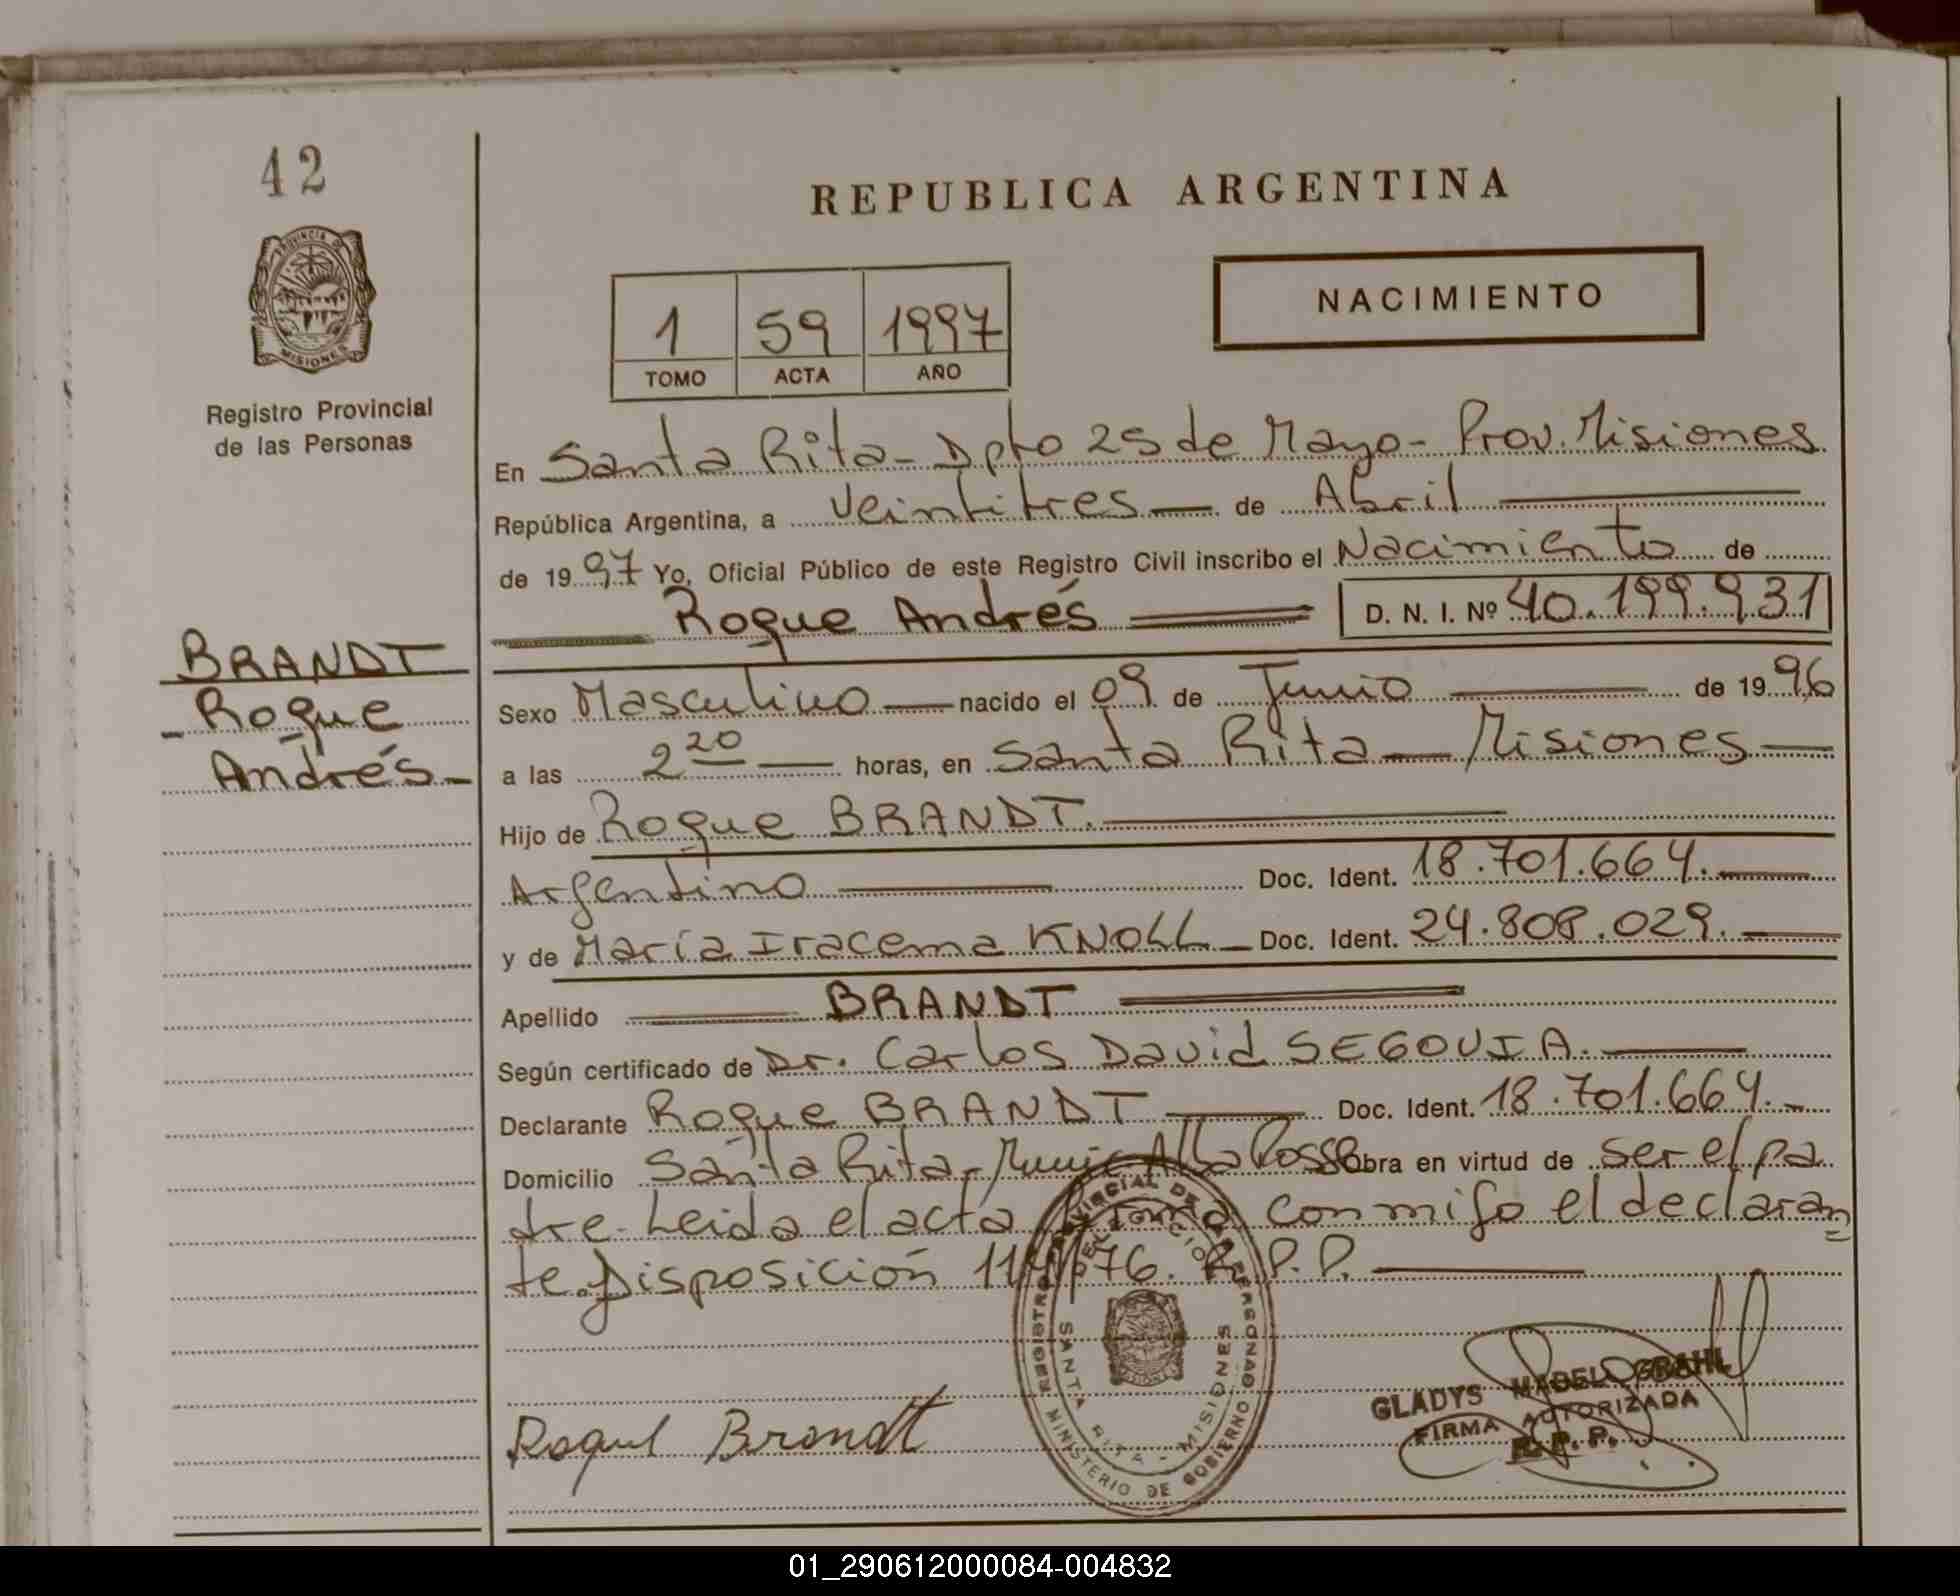 42
REPUBLICA ARGENTINA
PROVINCIA DE
MISIONES
Registro Provincial
de las Personas
1 59 1997
TOMO ACTA AÑO
NACIMIENTO
En Santa Rita - Dpto 25 de Mayo - Prov. Misiones
República Argentina, a veintitres — de Abril —
de 1997 Yo, Oficial Público de este Registro Civil inscribo el Nacimiento de
Roque Andrés D. N. I. Nº 40.199.931
BRANDT
- Roque
Andrés -
Sexo Masculino — nacido el 09 de Junio — de 1996
a las 2 20 — horas, en Santa Rita — Misiones —
Hijo de Roque BRANDT. —
Argentino — Doc. Ident. 18.701.664. —
y de María Iracema KNOLL — Doc. Ident. 24.808.029. —
Apellido — BRANDT —
Según certificado de Dr. Carlos David SEGOVIA. —
Declarante Roque BRANDT — Doc. Ident. 18.701.664. -
Domicilio Santa Rita - Munic Alba Posse Obra en virtud de ser el pa
dre - Leida el acta firma conmigo el declaran
te. Disposición R.P.P. —
REGISTRO PROVINCIAL DE LAS PERSONAS
DELEGACION
SANTA RITA - MISIONES
MINISTERIO DE GOBIERNO
Roque Brandt
GLADYS GRAHL
FIRMA AUTORIZADA
R. P. P.
01_290612000084-004832